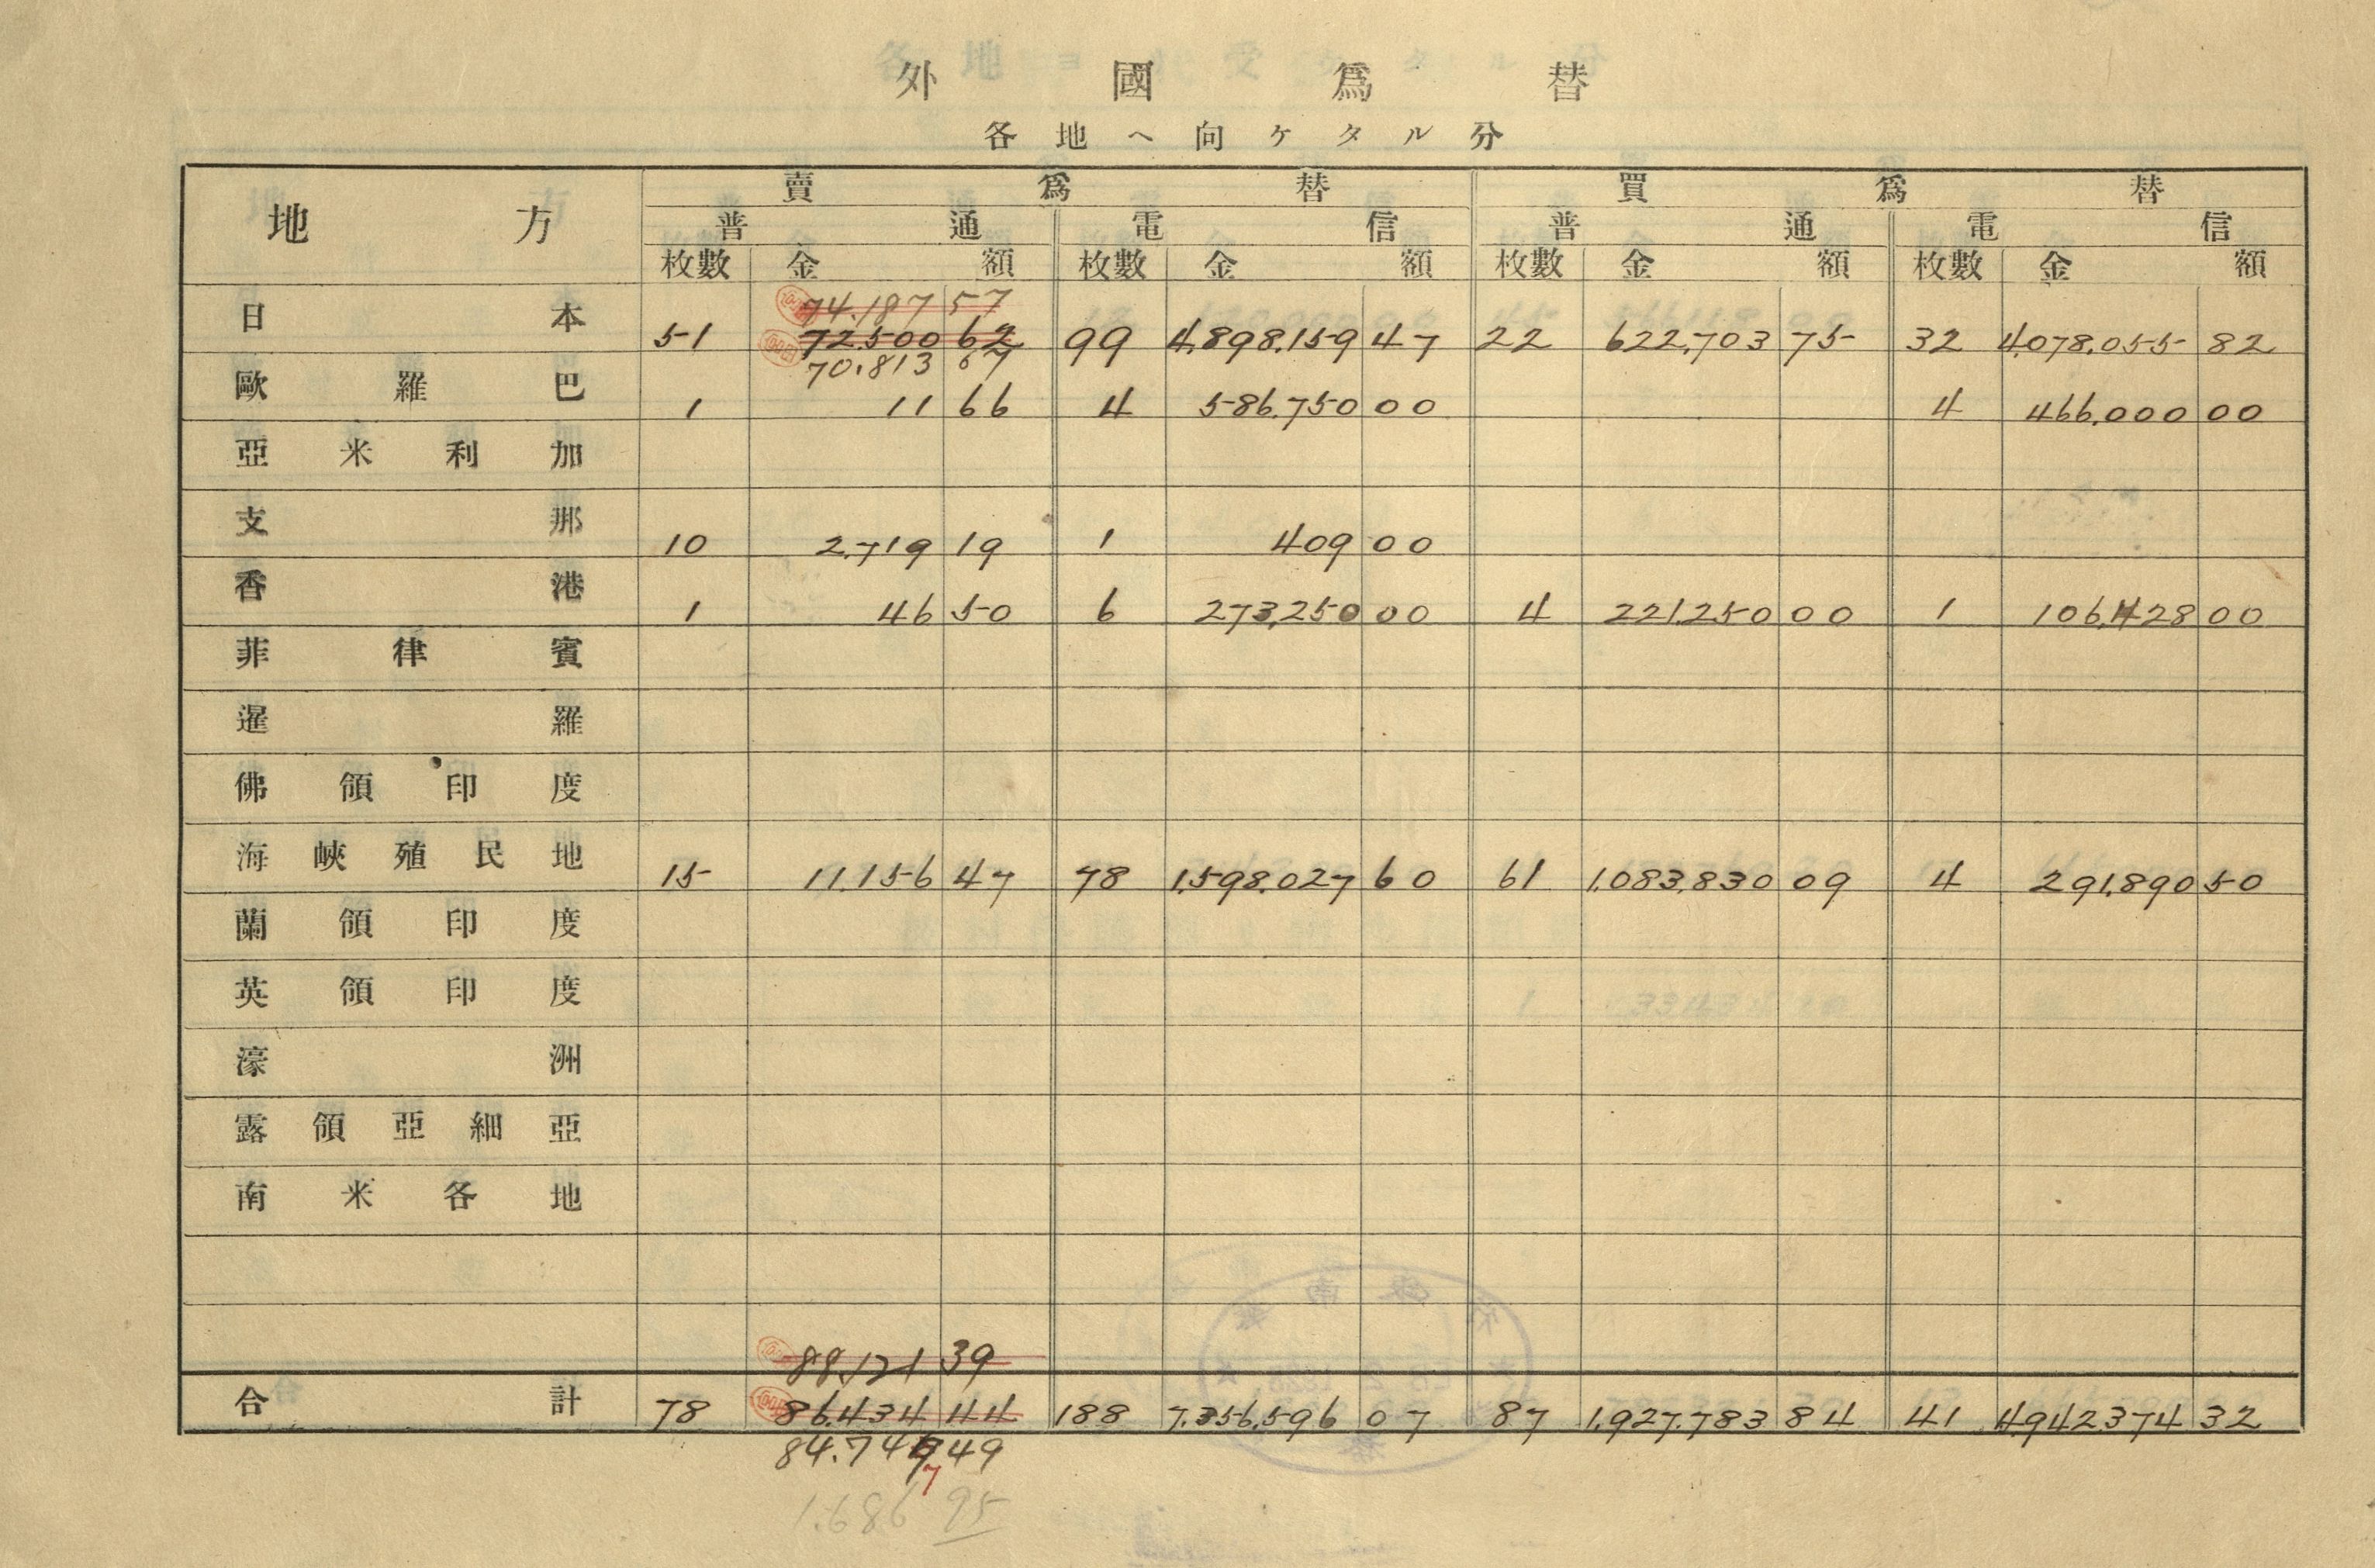 外國爲替
各地ヘ向ケタル分
地方 賣爲替 買爲替
普通 電信 普通 電信
枚數 金額 枚數 金額 枚數 金額 枚數 金額
74.187 57
日本 51 72.500 62 99 4,898.159 47 22 622.703 75 32 4,078.055 82
70.813 67
歐羅巴 1 11 66 4 586.750 00 4 466.000 00
亞米利加
支那 10 2.719 19 1 409 00
香港 1 46 50 6 273,250 00 4 221.250 00 1 106,428 00
菲律賓
暹羅
佛領印度
海峽殖民地 15 11.156 47 78 1,598.027 60 61 1,083.830 09 4 291,890 50
蘭領印度
英領印度
濠洲
露領亞細亞
南米各地
88.121 39
合計 78 86.434 44 188 7.356.596 07 87 1,927.783 84 41 4,942374 32
84.747 49
7
1.686 95